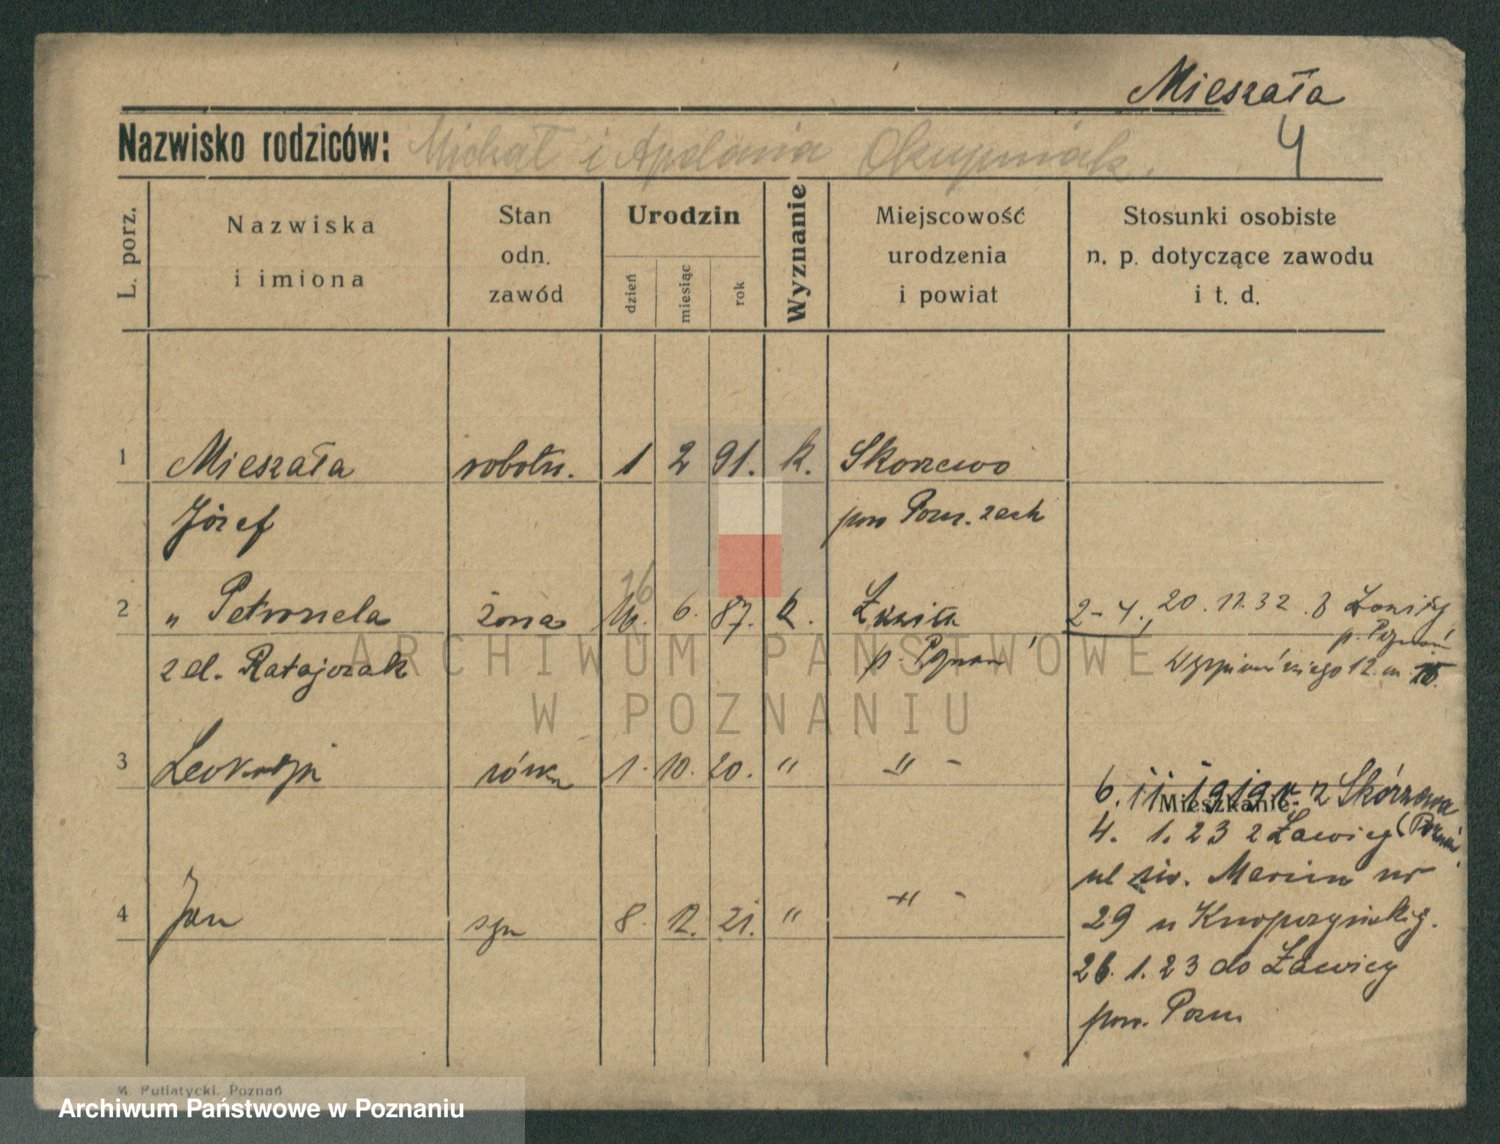 Mieszała
4
Nazwisko rodziców: Michał i Apolonia Okupniak.
L. porz.
Nazwiska
i imiona
Stan
odn.
zawód
Urodzin
dzień
miesiąc
rok
Wyznanie
Miejscowość
urodzenia
i powiat
Stosunki osobiste
n. p. dotyczące zawodu
i t. d.
1 Mieszała robotn. 1 2 91. k. Skorzewo
Józef pow Pozn. zach
16
2 " Petronela żona 16. 6. 87. k. 2-4., 20.11.32. z
z d. Ratajczak p. Poznań
p. Poznań
12 m. 15.
3 Leokadja córka 1. 10. 20. " " -
6. 11 1919 r. z Skórzewa
Mieszkanie:
4. 1. 23 z Ławicy (Poznań
ul św. Marcin nr
4 Jan syn 8. 12. 21. " " -
29 u
26. 1. 23 do Ławicy
pow. Pozn
M. Putiatycki, Poznań
ARCHIWUM PAŃSTWOWE
W POZNANIU
Archiwum Państwowe w Poznaniu